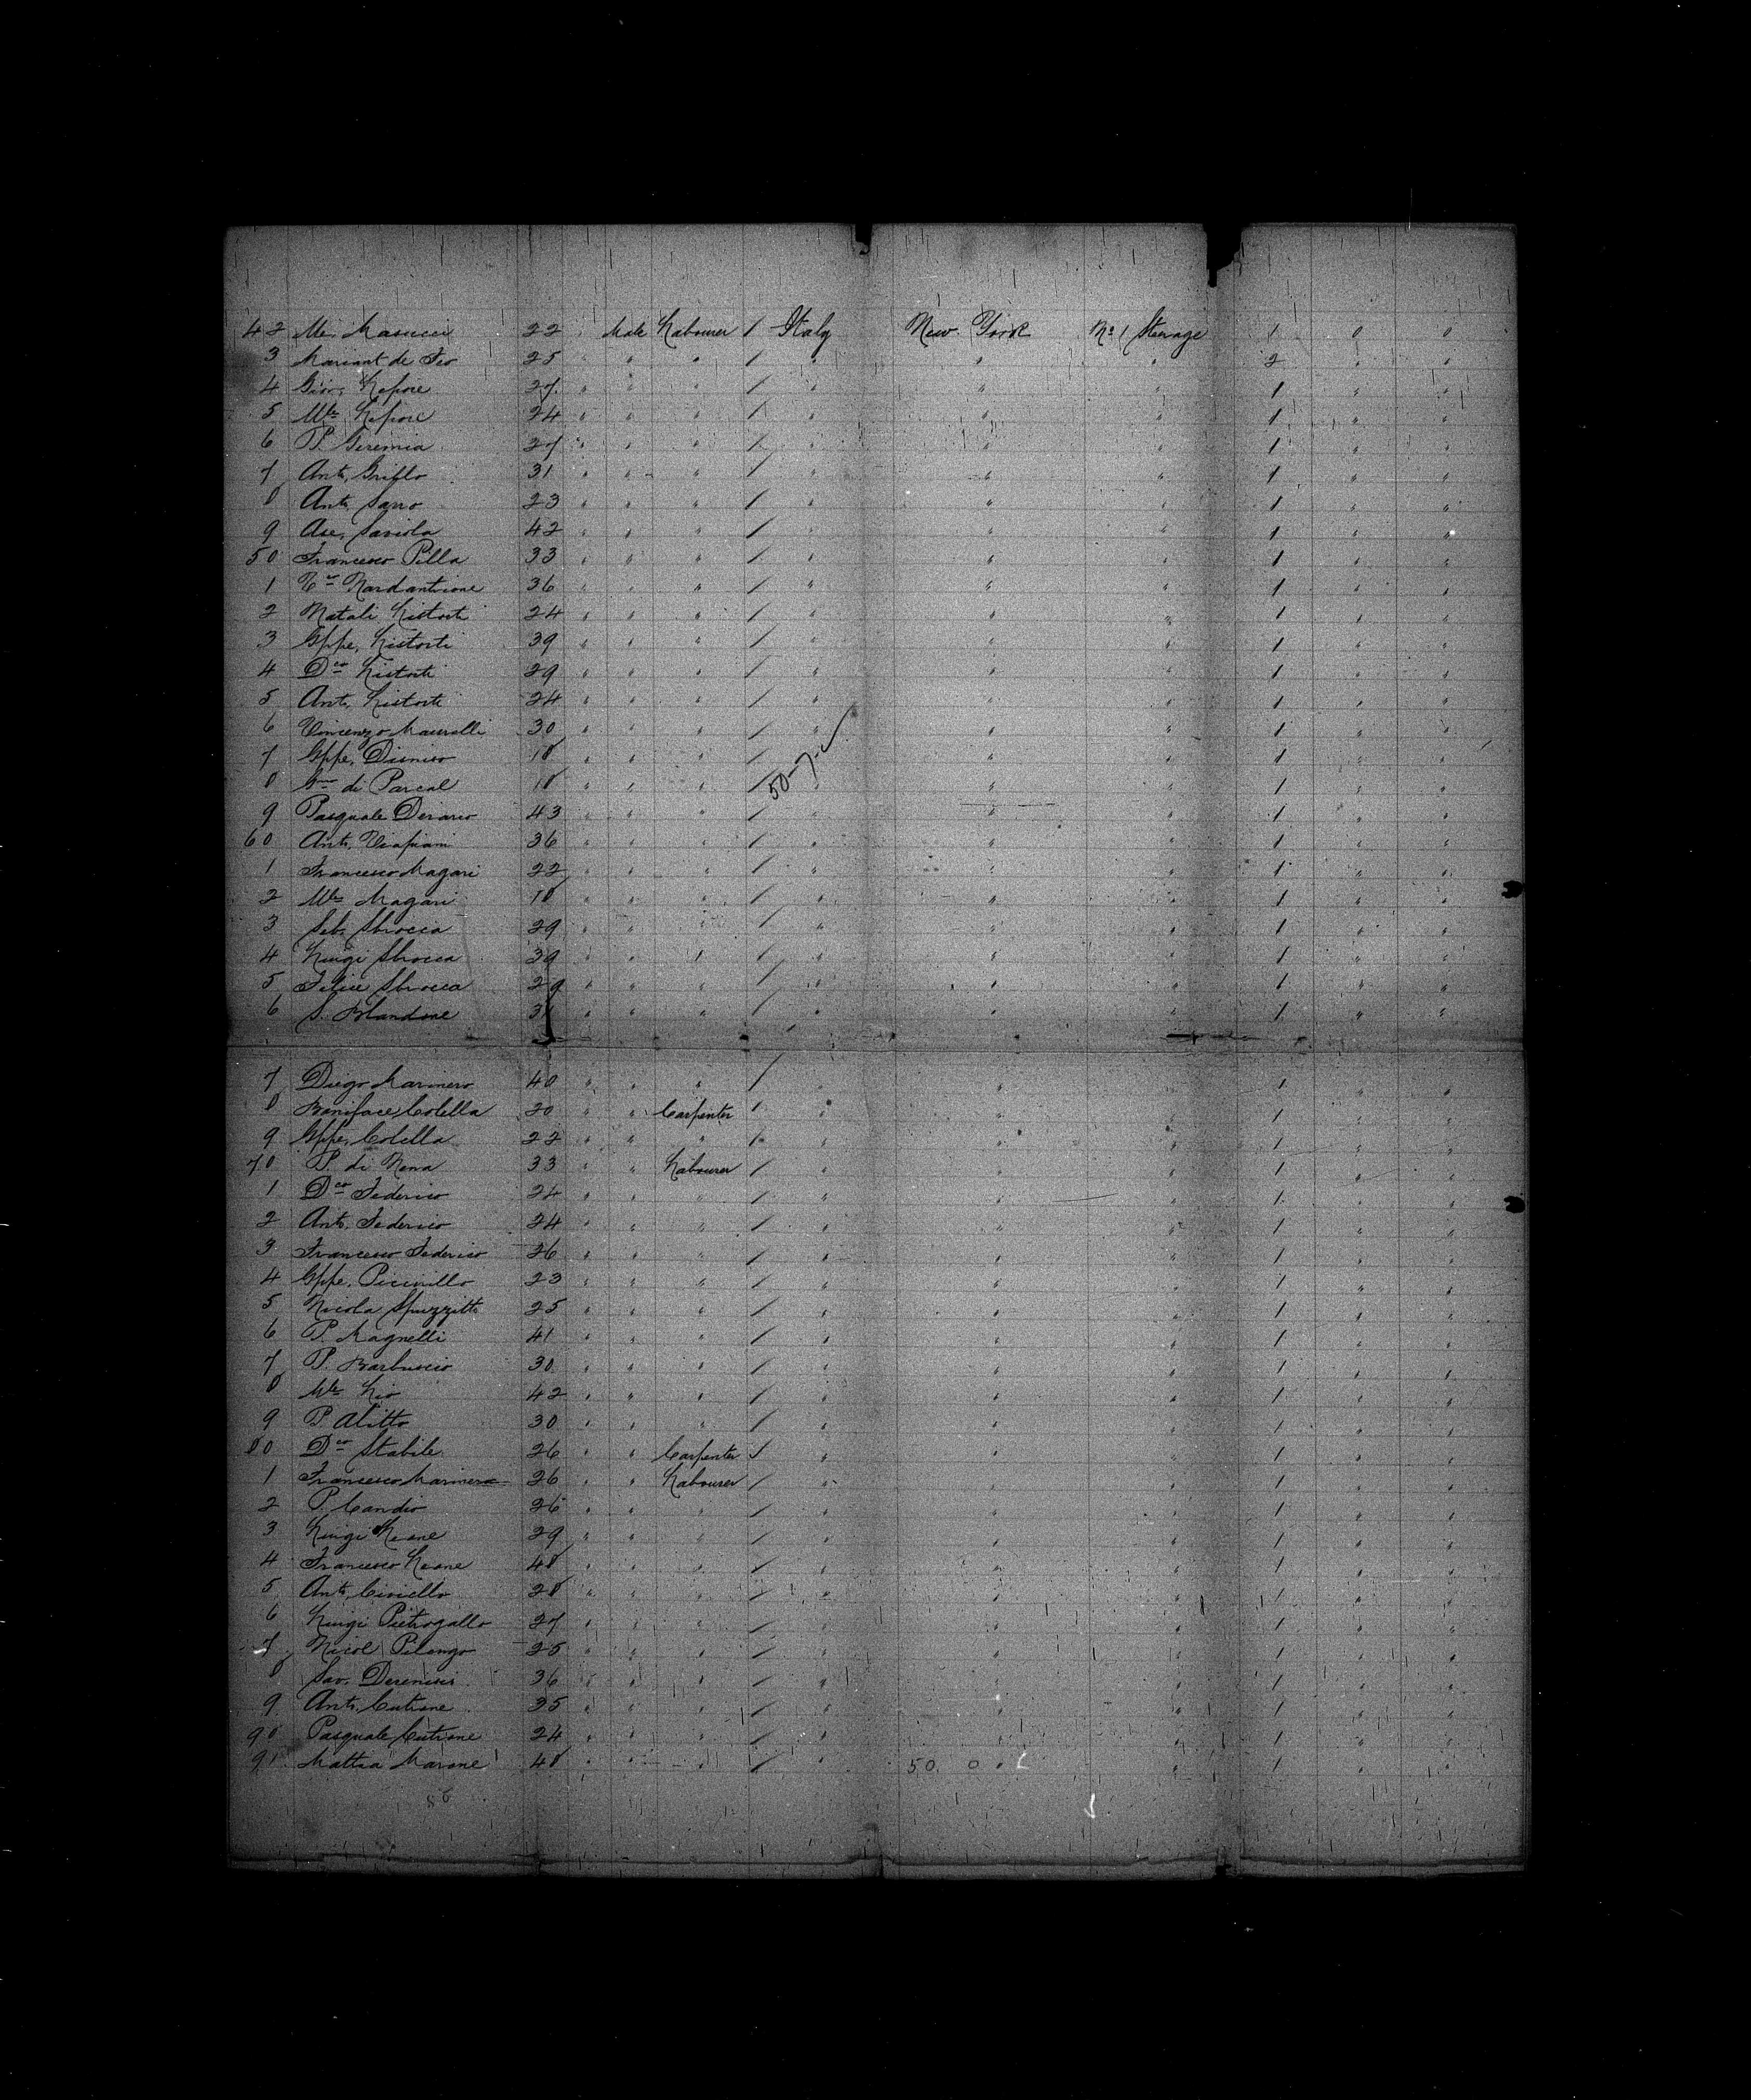 42 Mle. Masucci 22 " Male Labourer / Italy New. York No 1 Steerage 1 0 0
3 Mariant de Feo 25 " " " / " " " 2 " "
4 Giov. Lepore 27 " " " / " " " 1 " "
5 Mle Lepore 24 " " " / " " " 1 " "
6 P. Geremia 27 " " " / " " " 1 " "
7 Ant. Grillo 31 " " " / " " " 1 " "
8 Ant. Sarro 23 " " " / " " " 1 " "
9 Saviola 42 " " " / " " " 1 " "
50 Francesco Pilla 33 " " " / " " " 1 " "
1 Nardantuone 36 " " " / " " " 1 " "
2 Natali Listorti 24 " " " / " " " 1 " "
3 Gppe. Listorti 39 " " " / " " " 1 " "
4 Dco Listorti 29 " " " / " " " 1 " "
5 Ant. Listorti 24 " " " / " " " 1 " "
6 Vincenzo 30 " " " / " " " 1 " "
7 Gppe. 18 " " " / " " " 1 " "
8 di Pascal 18 " " " / 50 " " 1 " "
9 Pasquale 43 " " " / " " " 1 " "
60 Ant. 36 " " " / " " " 1 " "
1 Francesco Magari 22 " " " / " " " 1 " "
2 Mle Magari 18 " " " / " " " 1 " "
3 Seb. Sbrocca 29 " " " / " " " 1 " "
4 Luigi Sbrocca 39 " " " / " " " 1 " "
5 Felice Sbrocca 29 " " " / " " " 1 " "
6 S. Blandone 31 " " " / " " " 1 " "
7 Diego Marinero 40 " " " / " " " 1 " "
8 Boniface Colella 20 " " Carpenter / " " " 1 " "
9 Gppe. Colella 22 " " " / " " " 1 " "
70 P. di Nena 33 " " Labourer / " " " 1 " "
1 Dco Federico 24 " " " / " " " 1 " "
2 Ant. Federico 24 " " " / " " " 1 " "
3 Francesco Federico 26 " " " / " " " 1 " "
4 Gppe. Picinillo 23 " " " / " " " 1 " "
5 Nicola Spuzzitto 25 " " " / " " " 1 " "
6 P. Magnelli 41 " " " / " " " 1 " "
7 P. Barbuscio 30 " " " / " " " 1 " "
8 Mle Lio 42 " " " / " " " 1 " "
9 P. Alitto 30 " " " / " " " 1 " "
80 Dco Stabile 26 " " Carpenter / " " " 1 " "
1 Francesco Marinero 26 " " Labourer / " " " 1 " "
2 P. Candio 26 " " " / " " " 1 " "
3 Luigi Leone 29 " " " / " " " 1 " "
4 Francesco Leone 48 " " " / " " " 1 " "
5 Ant. 28 " " " / " " " 1 " "
6 Luigi Pietrogallo 27 " " " / " " " 1 " "
7 Nicol Pilengo 25 " " " / " " " 1 " "
8 Sav. 36 " " " / " " " 1 " "
9 Ant. Cutrone 35 " " " / " " " 1 " "
90 Pasquale Cutrone 24 " " " / " " " 1 " "
91 Mattia Marone 48 " " " / " 50 0 " 1 " "